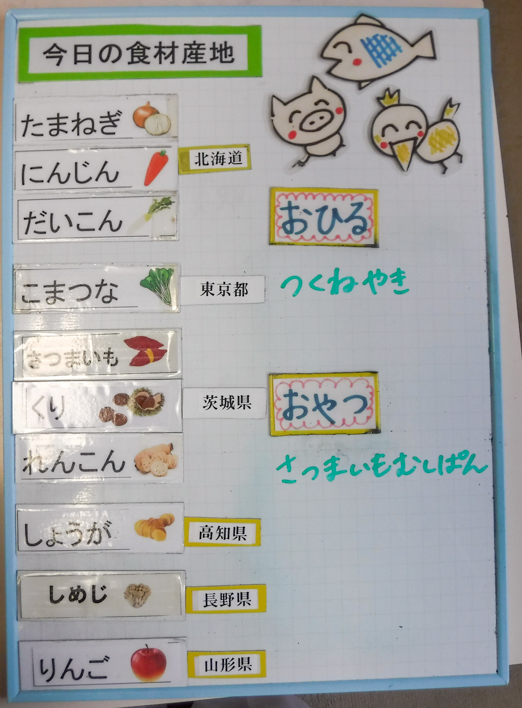 今日の食材産地
たまねぎ
にんじん 北海道
だいこん
こまつな 東京都
さつまいも
くり 茨城県
れんこん
しょうが 高知県
しめじ 長野県
りんご 山形県
おひる
つくねやき
おやつ
さつまいもむしぱん